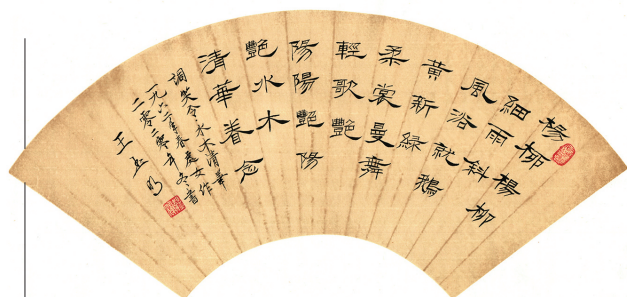 楊柳楊柳
細雨斜
風浴就鵝
黃新綠
柔裳曼舞
輕歌艷
陽陽豔陽
豔水木
清華眷念
調笑令水木清華
一九六二年春處女作
二零二零年冬書
王